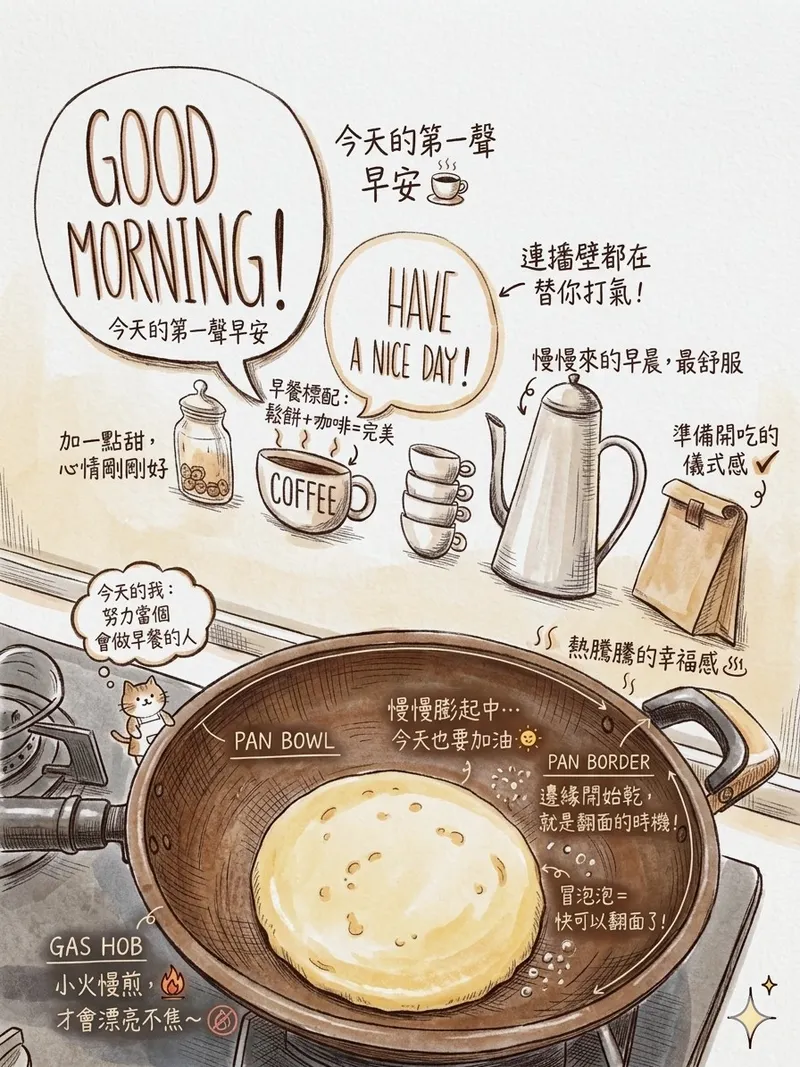 GOOD
MORNING!
今天的第一聲早安
今天的第一聲
早安
HAVE
A NICE DAY!
連播壁都在
替你打氣!
慢慢來的早晨,最舒服
早餐標配:
鬆餅+咖啡=完美
加一點甜,
心情剛剛好
COFFEE
準備開吃的
儀式感
今天的我:
努力當個
會做早餐的人
熱騰騰的幸福感
慢慢膨起中…
今天也要加油
PAN BOWL
PAN BORDER
邊緣開始乾,
就是翻面的時機!
冒泡泡=
快可以翻面了!
GAS HOB
小火慢煎,
才會漂亮不焦~